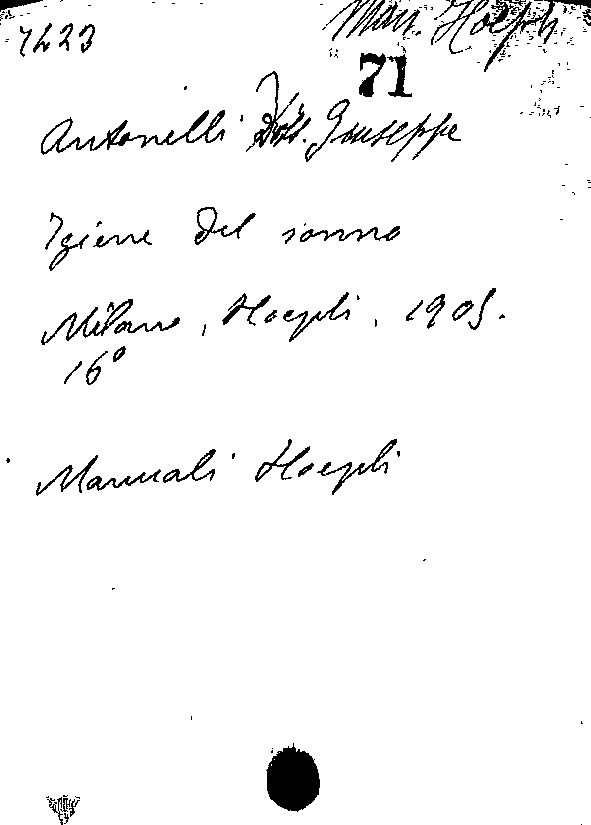 7223
Man. Hoepli
71
Antonelli Dott. Giuseppe
Igiene del sonno
Milano, Hoepli, 1905.
16°
Manuali Hoepli